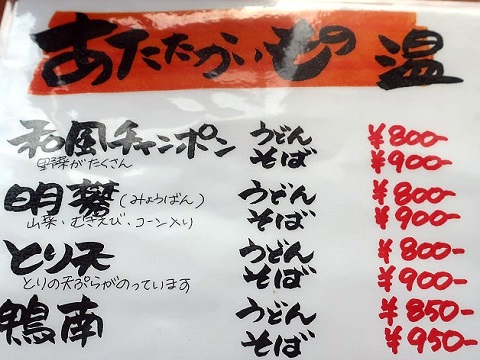 あたたかいもの 温
和風チャンポン うどん ¥800-
野菜がたくさん そば ¥900-
明礬(みょうばん) うどん ¥800-
山菜・むきえび・コーン入り そば ¥900-
とり天 うどん ¥800-
とりの天ぷらがのっています そば ¥900-
鴨南 うどん ¥850-
そば ¥950-